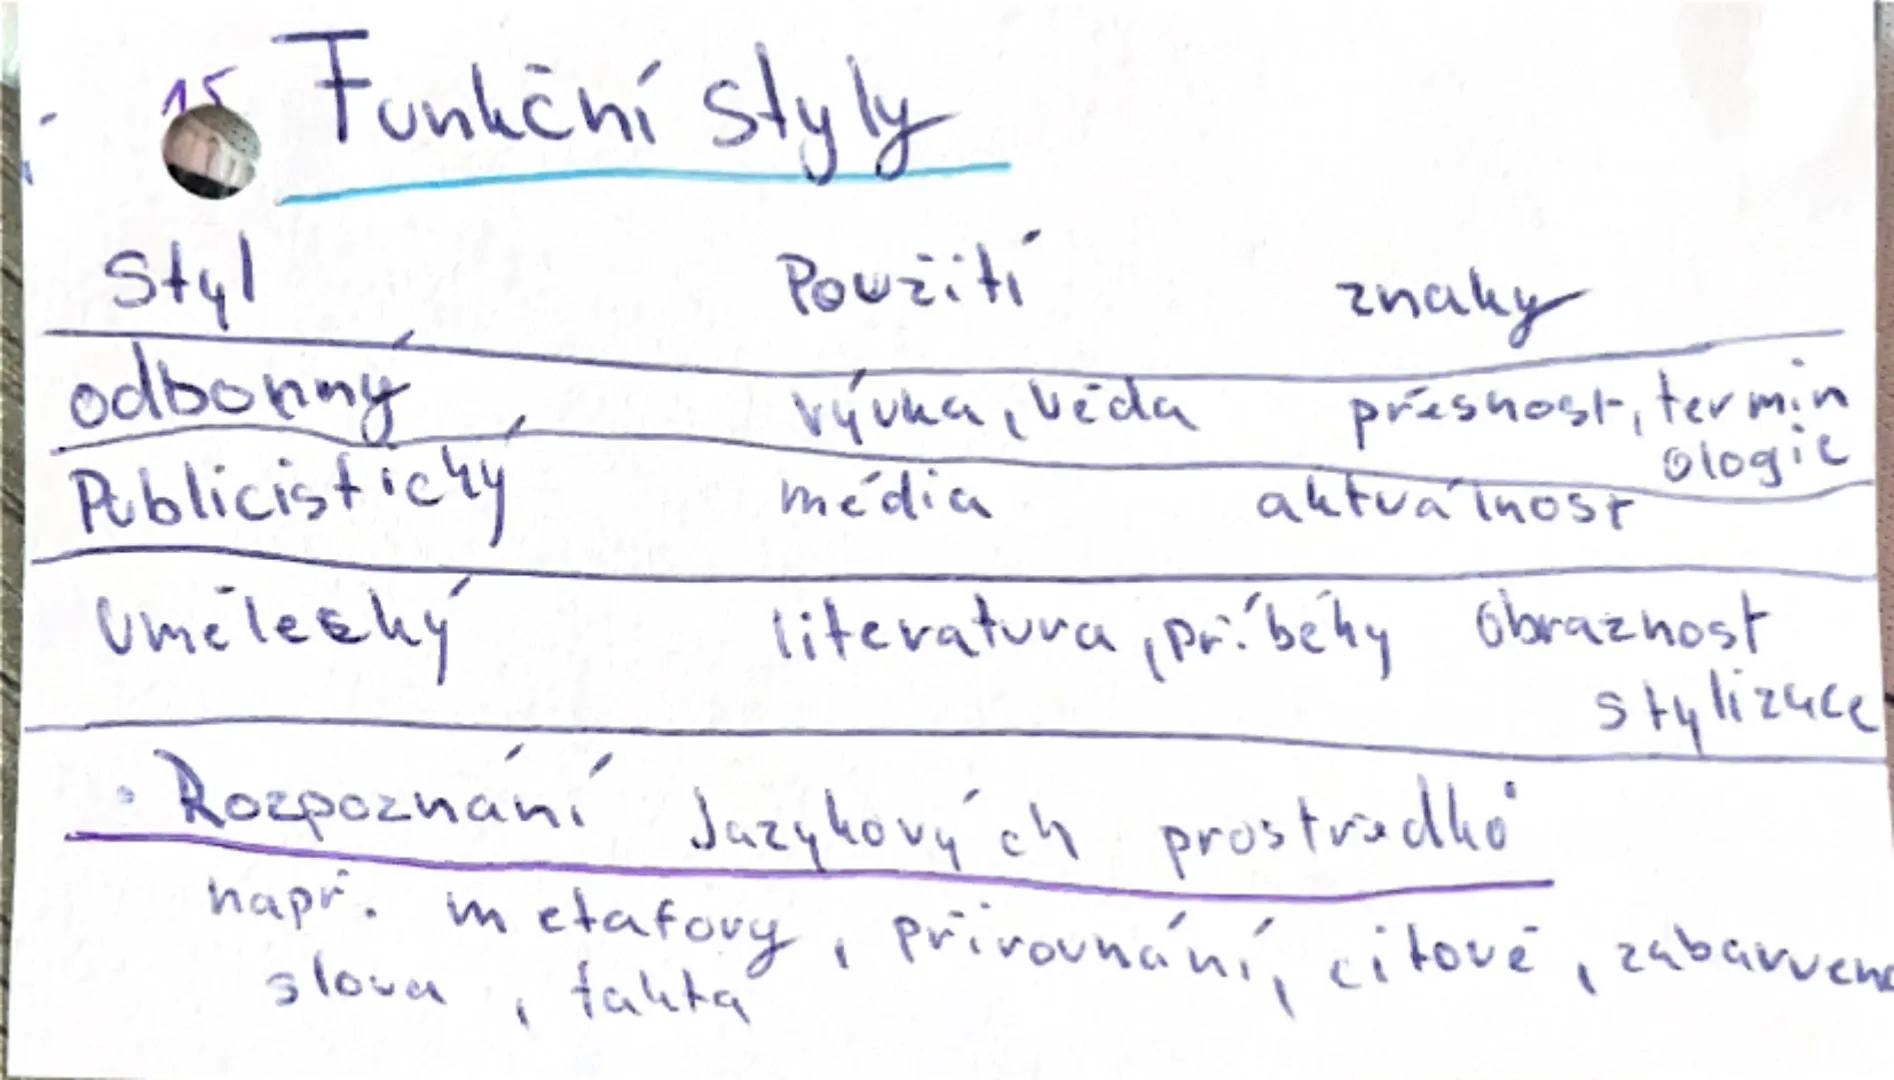 15 Funkční styly
Styl Použití znaky
odborný výuka, věda přesnost, termin
ologie
Publicistický média aktuálnost
Umělecký literatura, příběhy obraznost
stylizace
• Rozpoznání Jazykových prostředků
např. metafory, přirovnání, citově, zabarvena
slova, fakta